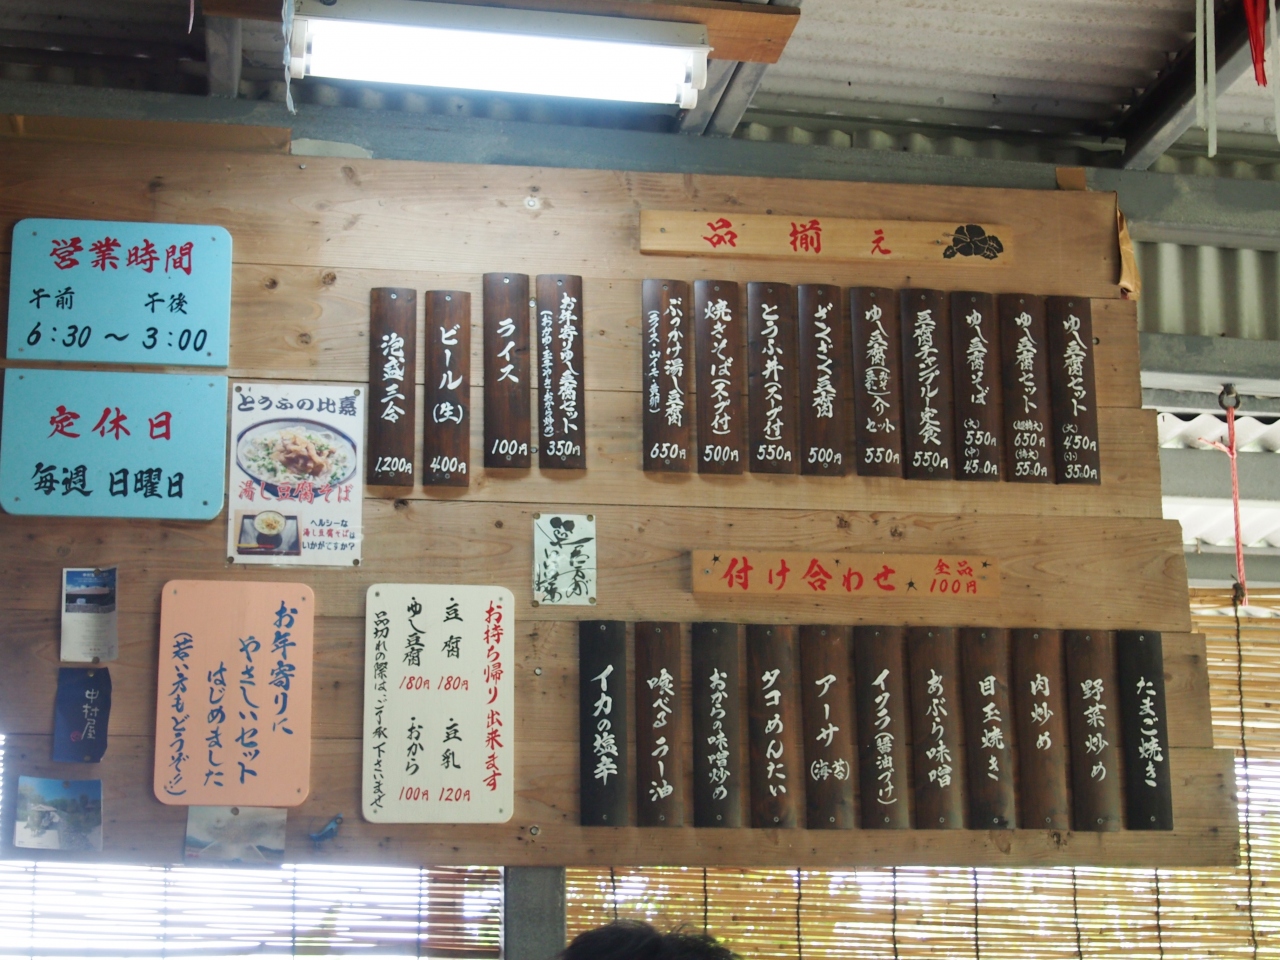 営業時間
午前 午後
6:30～3:00
定休日
毎週 日曜日
とうふの比嘉
湯し豆腐そば
ヘルシーな
湯し豆腐そばは
いかがですか?
品揃え
ゆし豆腐セット (大) 450円 (小) 350円
ゆし豆腐セット (超特大) 650円 (特大) 550円
ゆし豆腐そば (大) 550円 (中) 450円
豆腐チャンプルー定食 550円
ゆし豆腐 入セット 550円
ざるどうふ 500円
とうふ丼(スープ付) 550円
焼きそば(スープ付) 500円
ぶっかけ湯し豆腐 650円
お年寄りゆし豆腐セット 350円
ライス 100円
ビール(生) 400円
泡盛三合 1,200円
付け合わせ 全品 100円
たまご焼き
野菜炒め
肉炒め
目玉焼き
あぶら味噌
イクラ(醤油づけ)
アーサ(海苔)
タコめんたい
おからの味噌炒め
喰べるラー油
イカの塩辛
お持ち帰り出来ます
豆腐 180円 豆乳 120円
ゆし豆腐 180円 おから 100円
品切れの際はご了承下さいませ
お年寄りに
やさしいセット
はじめました
(若い方もどうぞ!!)
中村屋